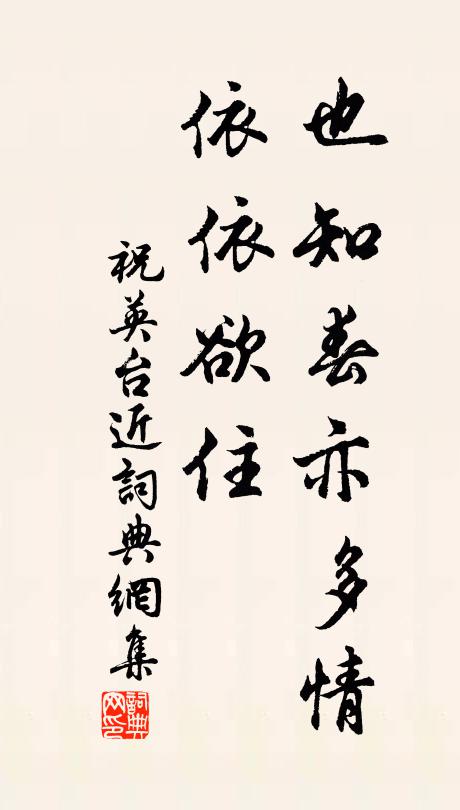 也知春亦多情
依依欲住
祝英台近詞典網集
詞典網印